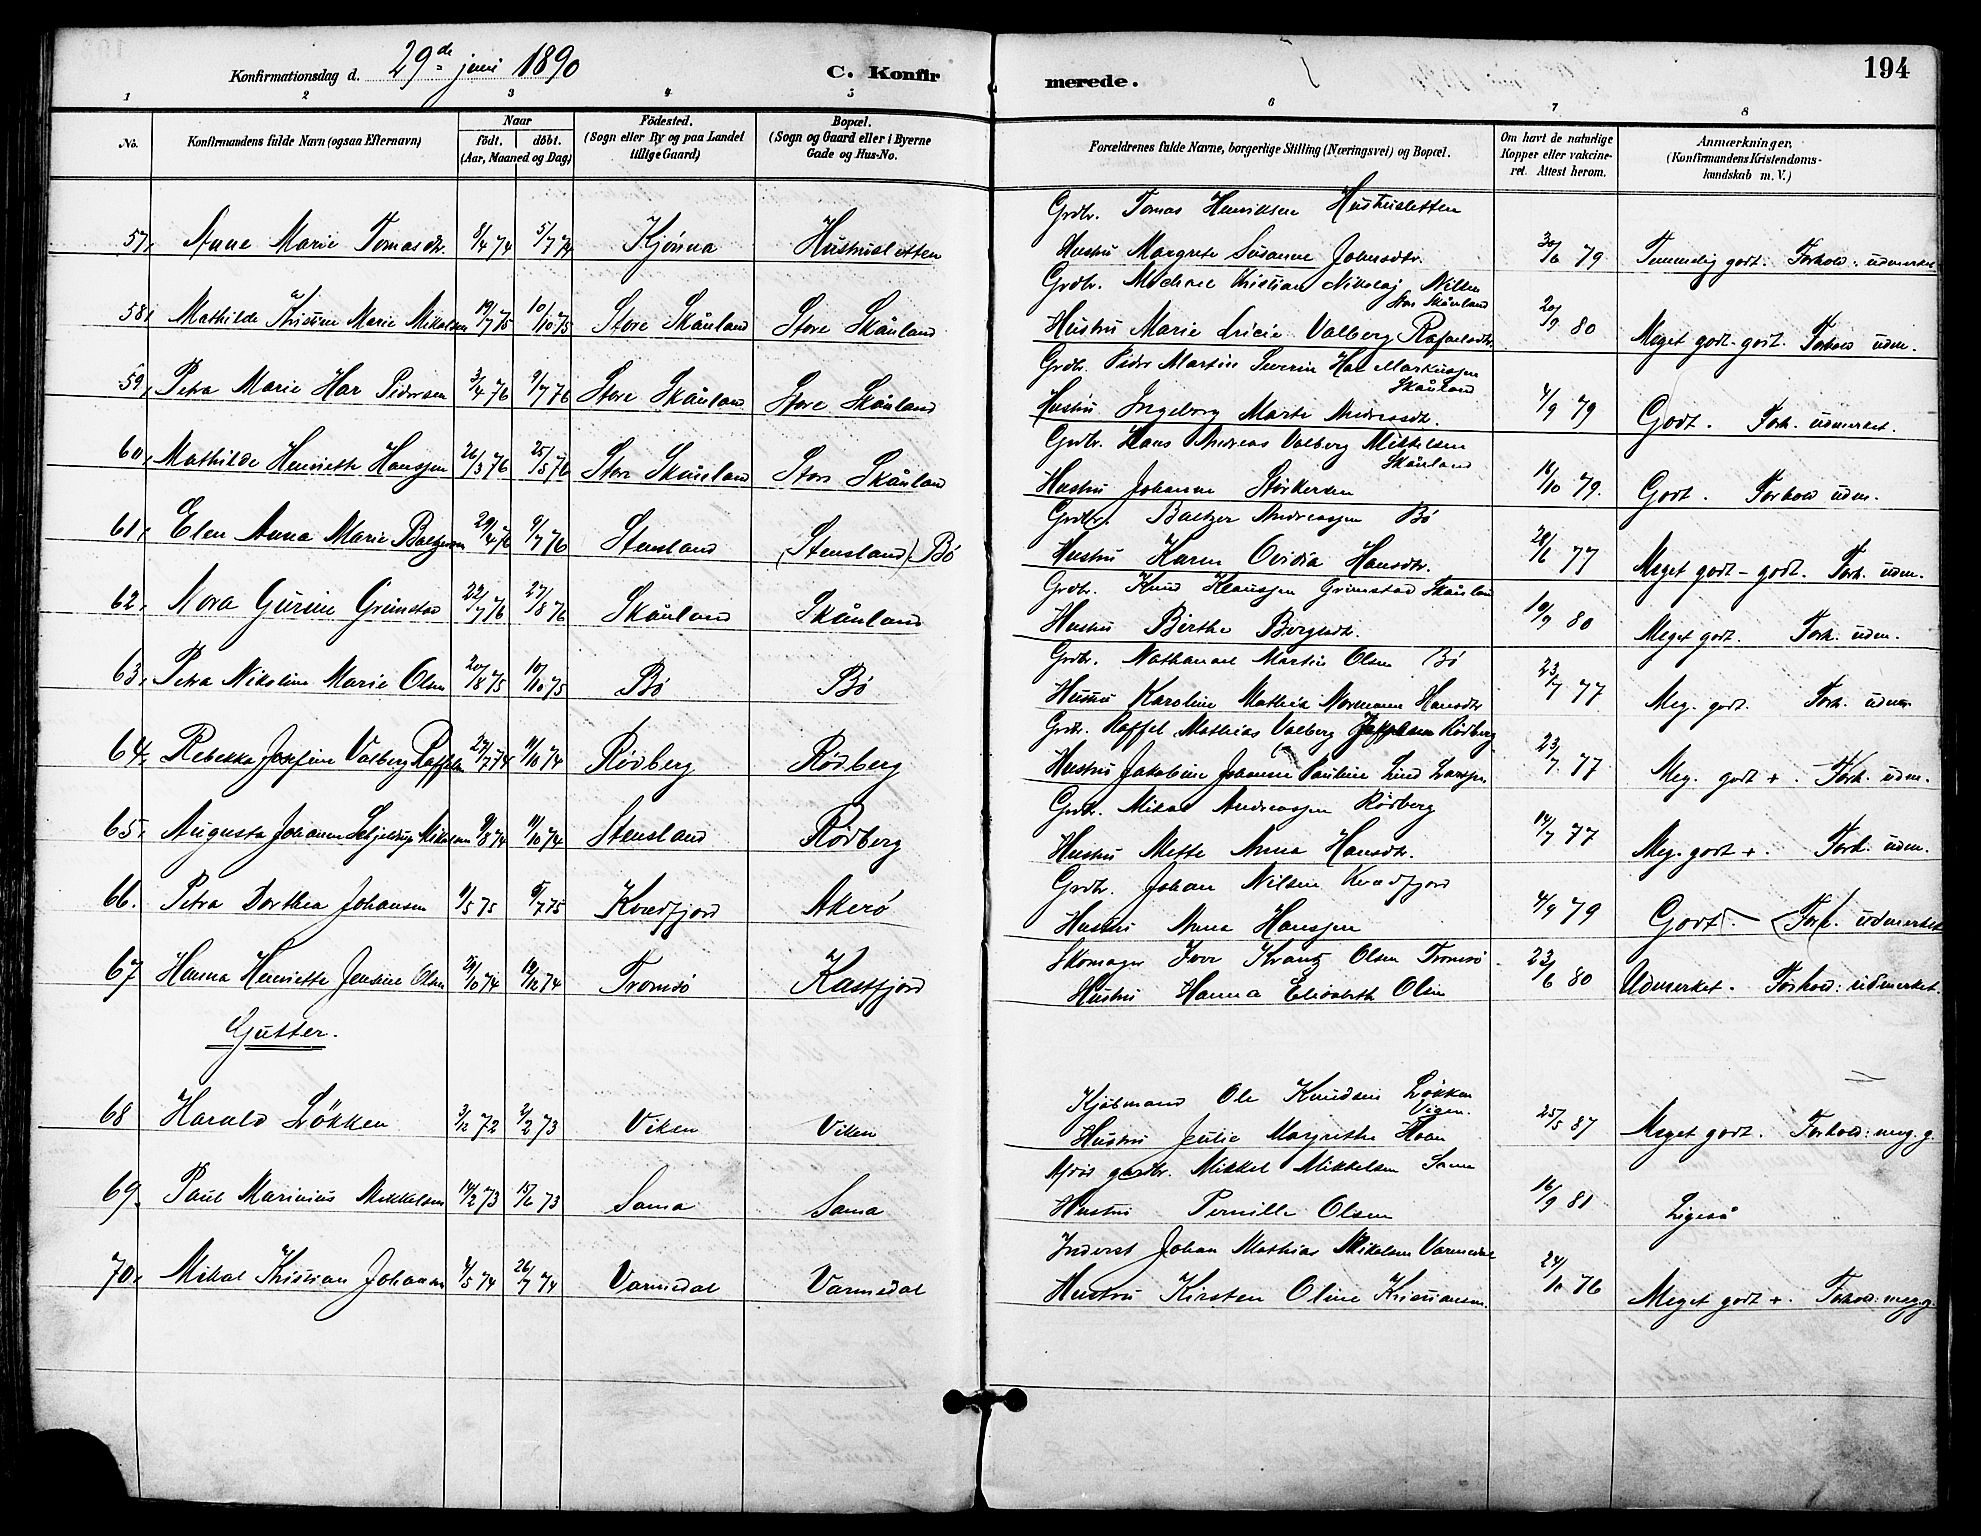 Konfirmationsdag d. 29de juni 1890 C. Konfirmerede. 194
1 2 3 4 5 6 7 8
No. Konfirmandens fulde Navn (ogsaa Efternavn) Naar födt. döbt. (Aar, Maaned og Dag) Födested. (Sogn eller By og paa Landet tillige Gaard) Bopæl. (Sogn og Gaard eller i Byerne Gade og Hus-No. Forældrenes fulde Navne, borgerlige Stilling (Næringsvei) og Bopæl. Om havt de naturlige Kopper eller vakcineret. Attest herom. Anmærkninger, (Konfirmandens Kristendomskundskab m. V.)
Grdbr. Tomas Henriksen Hushusletten
57, Anne Marie Tomasdtr. 8/4 74 5/7 74 Kjönna Hushusletten Hustru Margrete Susanne Johnsdtr. 30/6 79 Temmelig godt. Forhold: udmerket
Grdbr. Michael Kristian Nikolaj Nilsen
Stor Skånland
58, Mathilde Kristine Marie Mikalsen 19/7 75 10/10 75 Store Skånland Store Skånland Hustru Marie Lricie Valberg Rafaelsdtr. 20/9 80 Meget godt-godt. Forhold udm.
Grdbr. Peder Martin Severin Har Markussen
Skånland
59, Petra Marie Har Pedersen 3/4 76 9/7 76 Store Skånland Store Skånland Hustru Ingeborg Marte Andreasdtr. 4/9 79 Godt. Forh. udmerket.
Grdbr. Hans Andreas Valberg Mikkelsen
Skånland
60, Mathilde Henriette Hanssen 26/3 76 25/5 76 Store Skånland Store Skånland Hustru Johanne Störkersen 16/10 79. Godt. Forhold udm.
Grdbr. Baltzer Andreassen Bö
61, Elen Anna Marie Baltzersen 29/4 76 9/7 76 Stensland (Stensland) Bö Hustru Karen Ovidia Hansdtr. 28/6 77 Meget godt-godt. Forh. udm.
Grdbr. Knud Klaussen Grimstad Skånland
62, Nora Gurine Grimstad 22/7 76 27/8 76 Skånland Skånland Hustru Birthe Bergesdtr. 10/9 80 Meget godt. Forh. udm.
Grdbr. Nathanael Martin Olsen Bö
63, Petra Nikoline Marie Olsen 20/8 75 10/10 75 Bö Bö Hustru Karoline Mathea Normann Hansdtr 23/7 77 Meg. godt. Forh. udm.
Grdbr. Raffel Mathias Valberg Rödberg
64, Rebekka Josefine Valberg Raffelsen 27/7 74 11/10 74 Rödberg Rödberg Hustru Jakobine Johanna Pauline Lind Larssen 23/7. 77 Meg. godt +. Forh. udm.
Grdbr. Mikal Andreassen Rödberg
65, Augusta Johanne Schjelderup Mikalsen 9/8 74 11/10 74 Stensland Rödberg Hustru Mette Anna Hansdtr. 14/7 77 Meg. godt +. Forh. udm.
Grdbr. Johan Nilsen Kvædfjord
66. Petra Dorthea Johansen 9/5 75 8/7 75 Kvædfjord Akerö Hustru Anna Hanssen 4/9 79 Godt. Forh. udmerket
Skomager Iver Krantz Olsen Tromsö
67 Hanna Henriette Jensine Olsen 29/10 74 12/12 74 Tromsö Kastfjord Hustru Hanna Elisabeth Olsen 23/6 80 Udmerket. Forhold: udmerket.
Gutter.
Kjöbmand Ole Knudsen Lökken
Vigen.
68 Harald Lökken 3/12 72 2/2 73 Viken Viken Hustru Julie Margrethe Hoan 25/5 87 Meget godt. Forhold: meg. g.
Mikkel Mikkelsen Sama
69. Paul Marinius Mikkelsen 14/2 73 15/6 73 Sama Sama Hustru Pernille Olsen 16/9 81 Ligeså
Inderst Johan Mathias Mikalsen Varmedal
70, Mikal Kristian Johansen 4/5 74 26/7 74 Varmedal Varmedal Hustru Kirsten Oline Kristiansen. 24/10 76 Meget godt +. Forhold: meg. g.